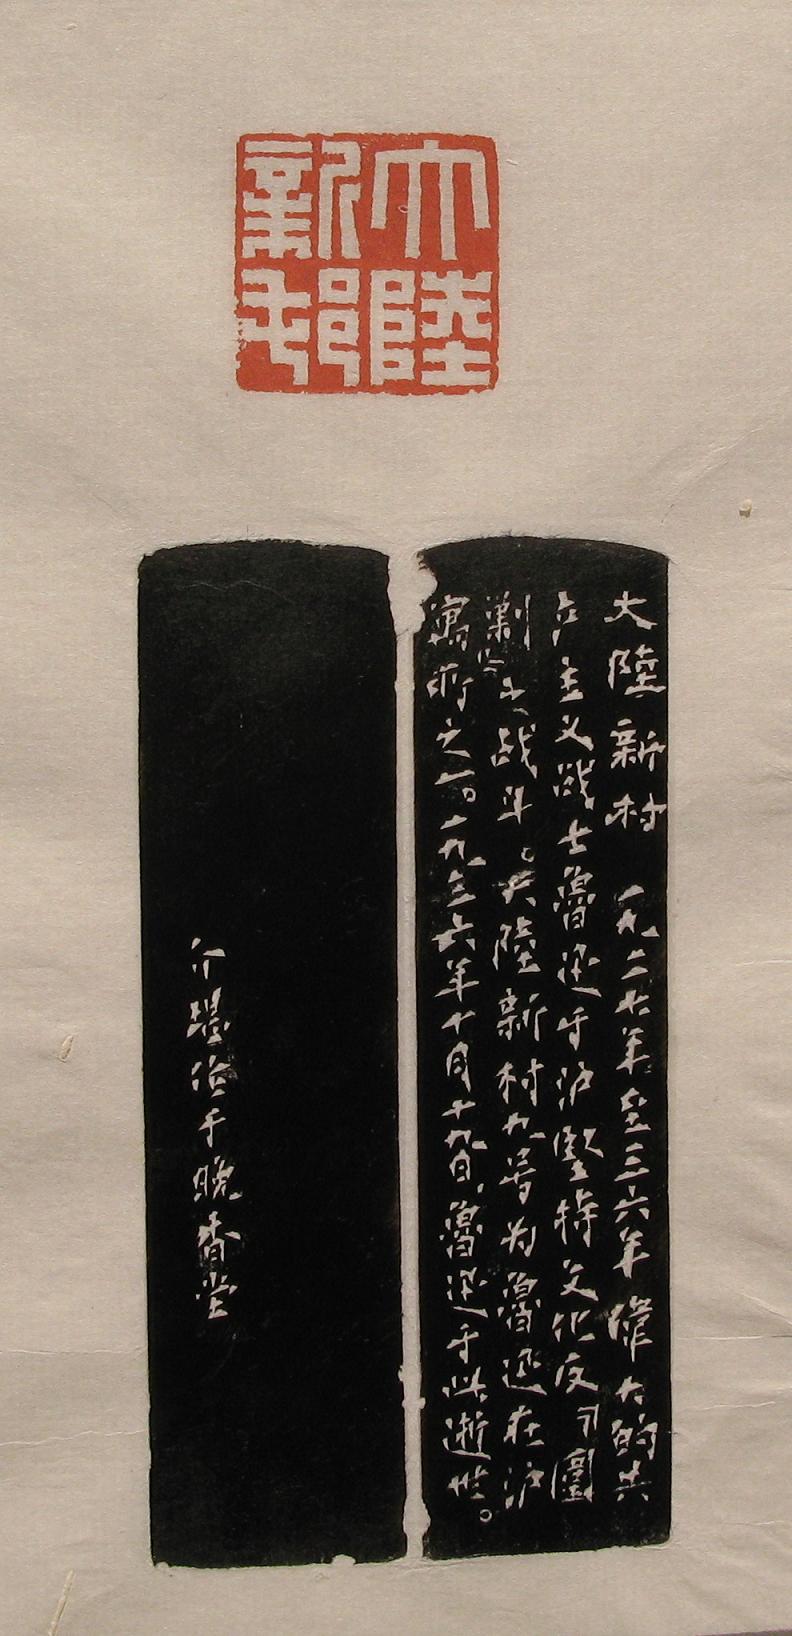 大陸
新邨
大陸新村 一九二七年至三六年偉大的共
产主义战士魯迅于沪堅持文化反圍
剿之战斗。大陸新村九号为魯迅在沪
寓所之一。一九三六年十月十九日，魯迅于此逝世。
介堪治于晚香堂